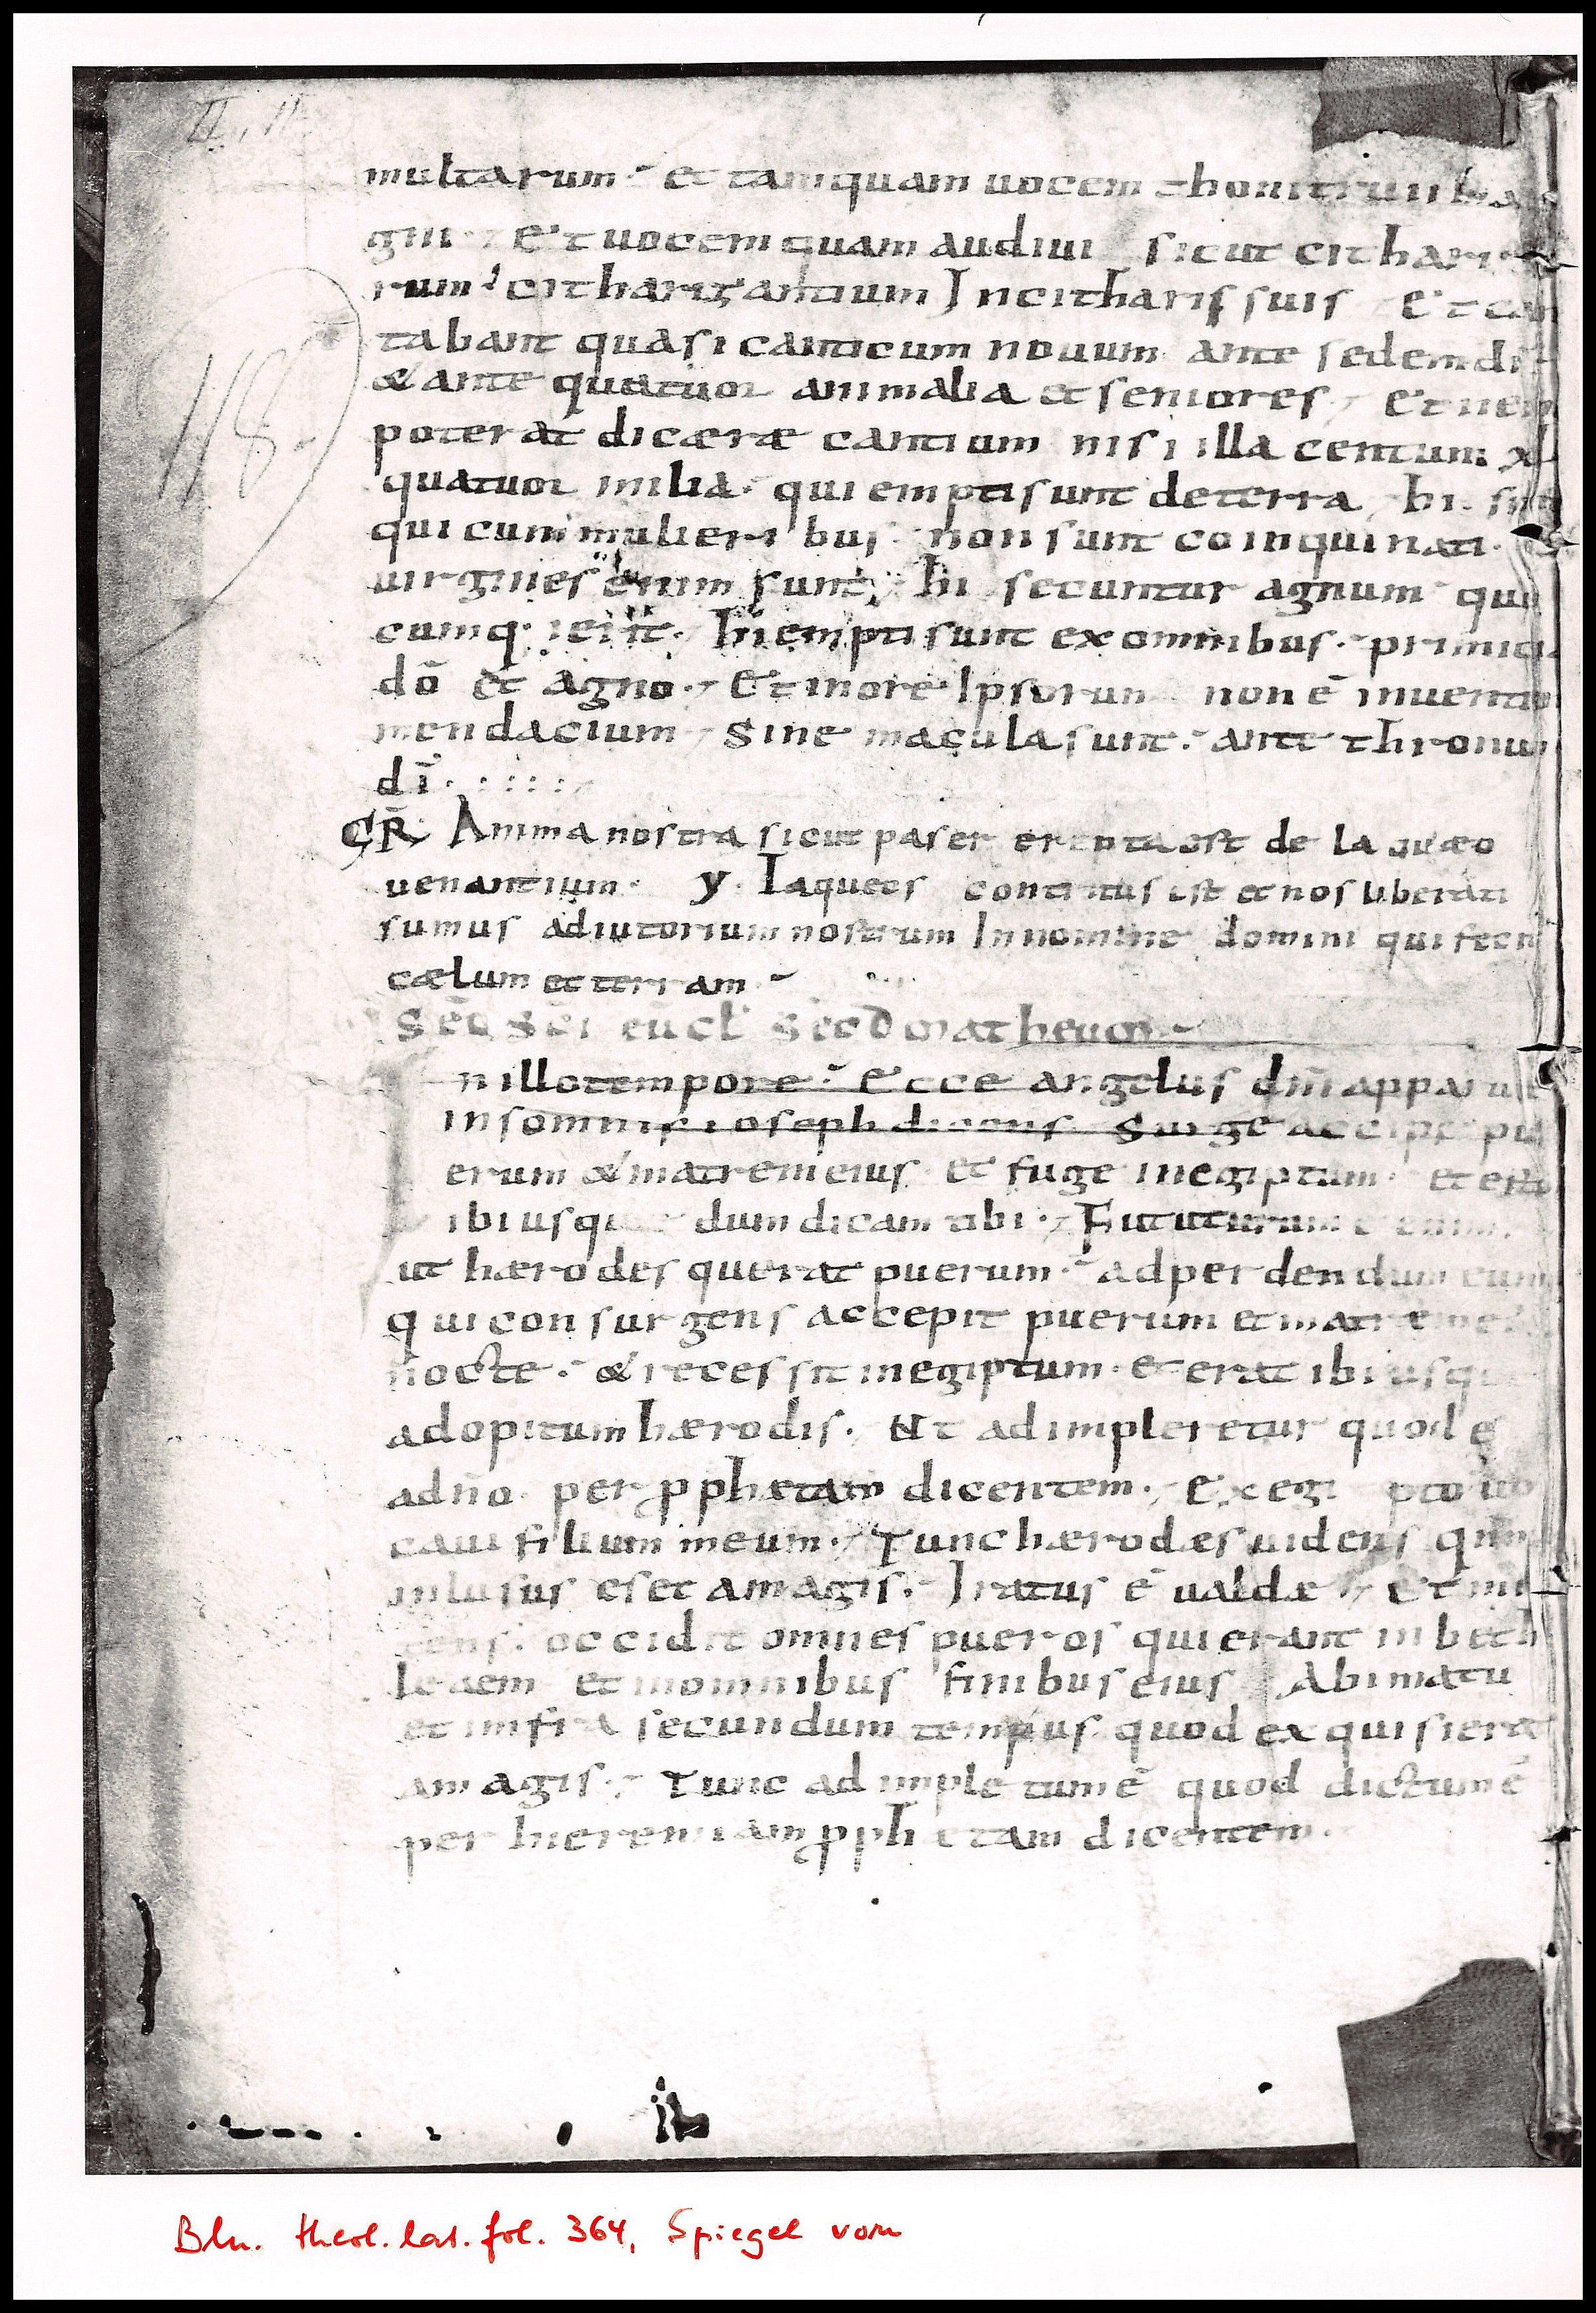 II, 11
118
multarum · et tamquam uocem thonitrui
gni · Et uocem quam audiui sicut cithari
rum · citharizantium In citharis suis · Et can
tabant quasi canticum nouum ante sedem dī
& ante quatuor animalia et seniores · Et nem
poterat dicæræ cantium nisi illa centum xl
quatuor milia · qui empti sunt de terra · hi sunt
qui cum mulieribus · non sunt coinquinati ·
uirgines enim sunt · hi secuntur agnum quo
cumq · ierit · hi empti sunt ex omnibus · primici
dō et agno · Et in ore ipsorum non ē inuentu
mendacium · Sine macula sunt · ante thronum
dī · : : : :
GR̄ Anima nostra sicut paser erepta est de laquæo
uenantium · y · Laqueos contritus est et nos liberati
sumus adiutorium nostrum In nomine domini qui fecit
cælum et terram
SEQ SCI EUGL SECD matheum
In illo tempore · Ecce angelus dn̄i apparuit
in somnis ioseph dicens · Surge accipe pu
erum & matrem eius et fuge in egiptum · et esto
ibi usque dum dicam tibi · Fututurum ē enim
ut hærodes querat puerum · ad perdendum eum
qui consurgens accepit puerum et matrem
nocte · & recessit in egiptum · et erat ibi usque
ad opitum hærodis · Ut adimpleretur quod
adn̄o per pphætam dicentem · Ex egipto uo
caui filium meum · Tunc hærodæs uidens qnm
inlusus eset amagis · Iratus ē ualdæ · Et mit
tens · occidit omnes pueros qui erant in beth
leaem et in omnibus finibus eius Abimatu
et imfra secundum tempus quod exquisierat
amagis · Tunc adimpletum ē quod dictum ē
per hieremiam pphetam dicentem ·
Bln. theol. lat. fol. 364, Spiegel vorn